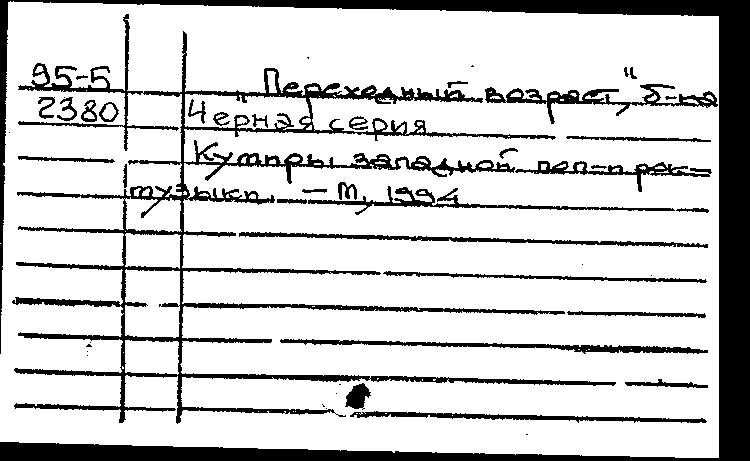 95-5 "Переходный возраст," б-ка
2380 "Черная серия
Кумиры западной поп-и рок-
музыки. – М, 1994